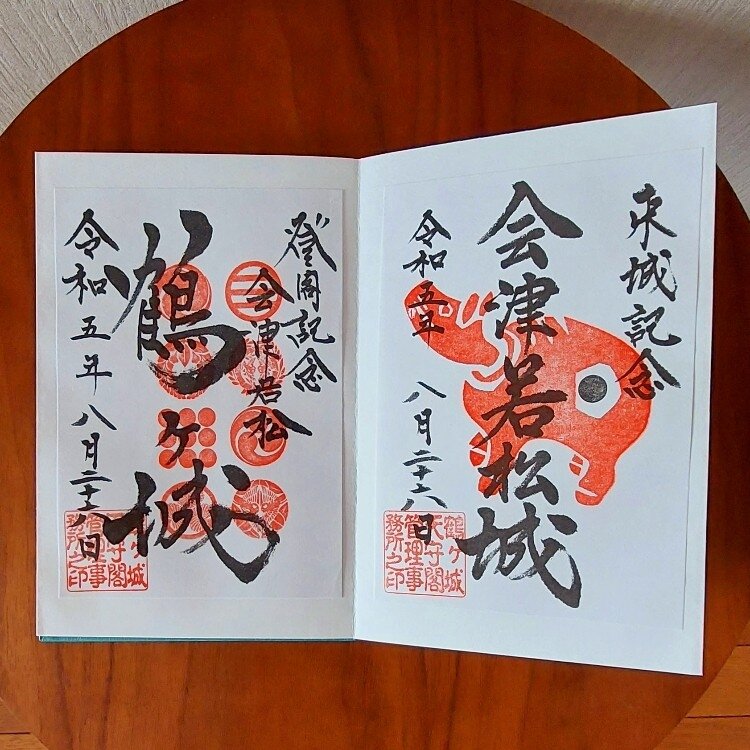 来城記念
会津若松城
令和五年 八月二十八日
鶴ヶ城
天守閣
管理事
務所之印
登閣記念
会津若松
鶴ヶ城
令和五年八月二十八日
ヶ城
守閣
管理事
務所之印